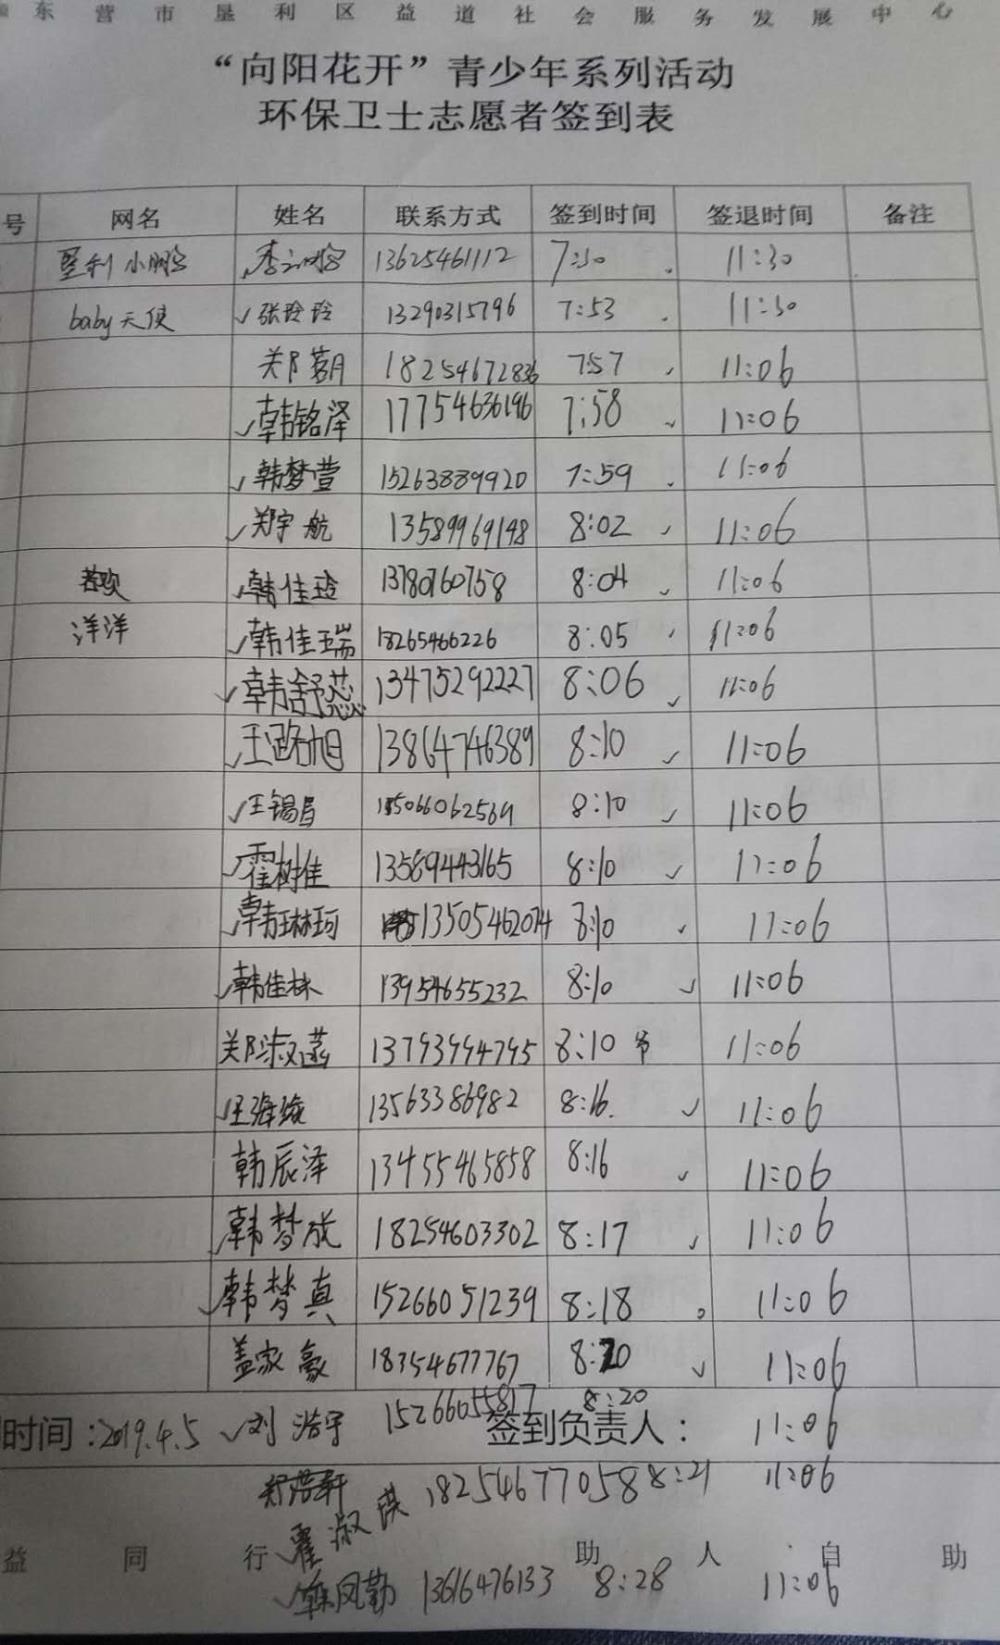 东营市垦利区益道社会服务发展中心
“向阳花开”青少年系列活动
环保卫士志愿者签到表
号 网名 姓名 联系方式 签到时间 签退时间 备注
垦利小鹏 13625461112 7:30 11:30
baby天使 张玲玲 13290315796 7:53 11:30
郑 18254672836 7:57 11:06
韩铭泽 17754636196 7:58 11:06
韩梦萱 15263889920 7:59 11:06
郑宇航 13589969148 8:02 11:06
韩佳玲 13780760758 8:04 11:06
洋洋 韩佳瑞 18265466226 8:05 11:06
韩舒蕊 13475292227 8:06 11:06
王璐旭 13864746389 8:10 11:06
王锡昌 15066062569 8:10 11:06
霍树佳 13589443165 8:10 11:06
韩琳珂 13505462074 8:10 11:06
韩佳林 13954655232 8:10 11:06
郑淑菡 13793994795 8:10 11:06
王海 13563386982 8:16 11:06
韩辰泽 13455465858 8:16 11:06
韩梦成 18254603302 8:17 11:06
韩梦真 15266051239 8:18 11:06
盖家豪 18354677767 8:20 11:06
时间:2019.4.5 刘浩宇 15266055817 8:20 签到负责人: 11:06
郑浩轩 18254677058 8:21 11:06
淑琪
益同行 助人自助
韩凤勤 13616476133 8:28 11:06